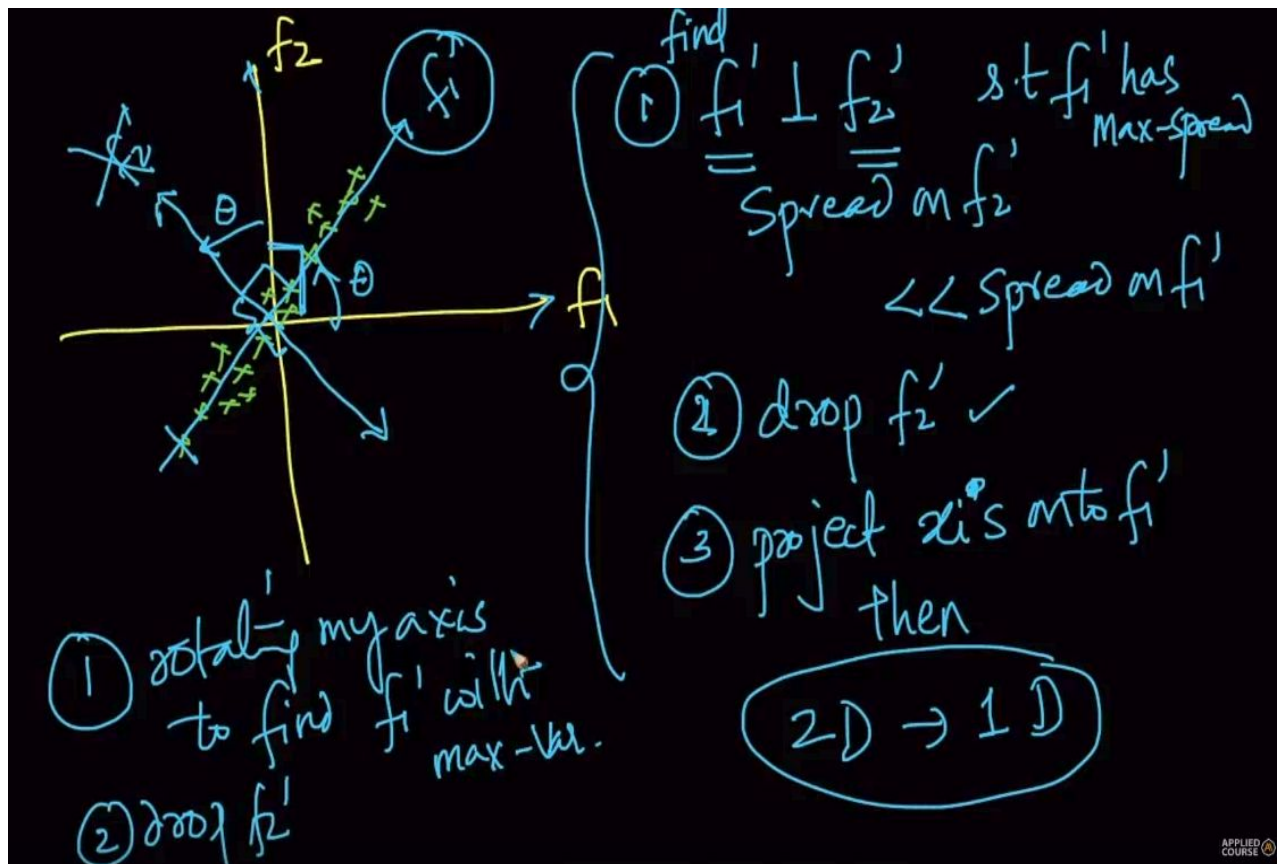 f2
f1'
θ
θ
f1
① rotating my axis
to find f1' with
max-var.
② drop f2'
find
① f1' ⊥ f2' s.t f1' has
Max-spread
Spread on f2'
<< Spread on f1'
② drop f2' ✓
③ project xi's onto f1'
then
2D → 1D
APPLIED
COURSE